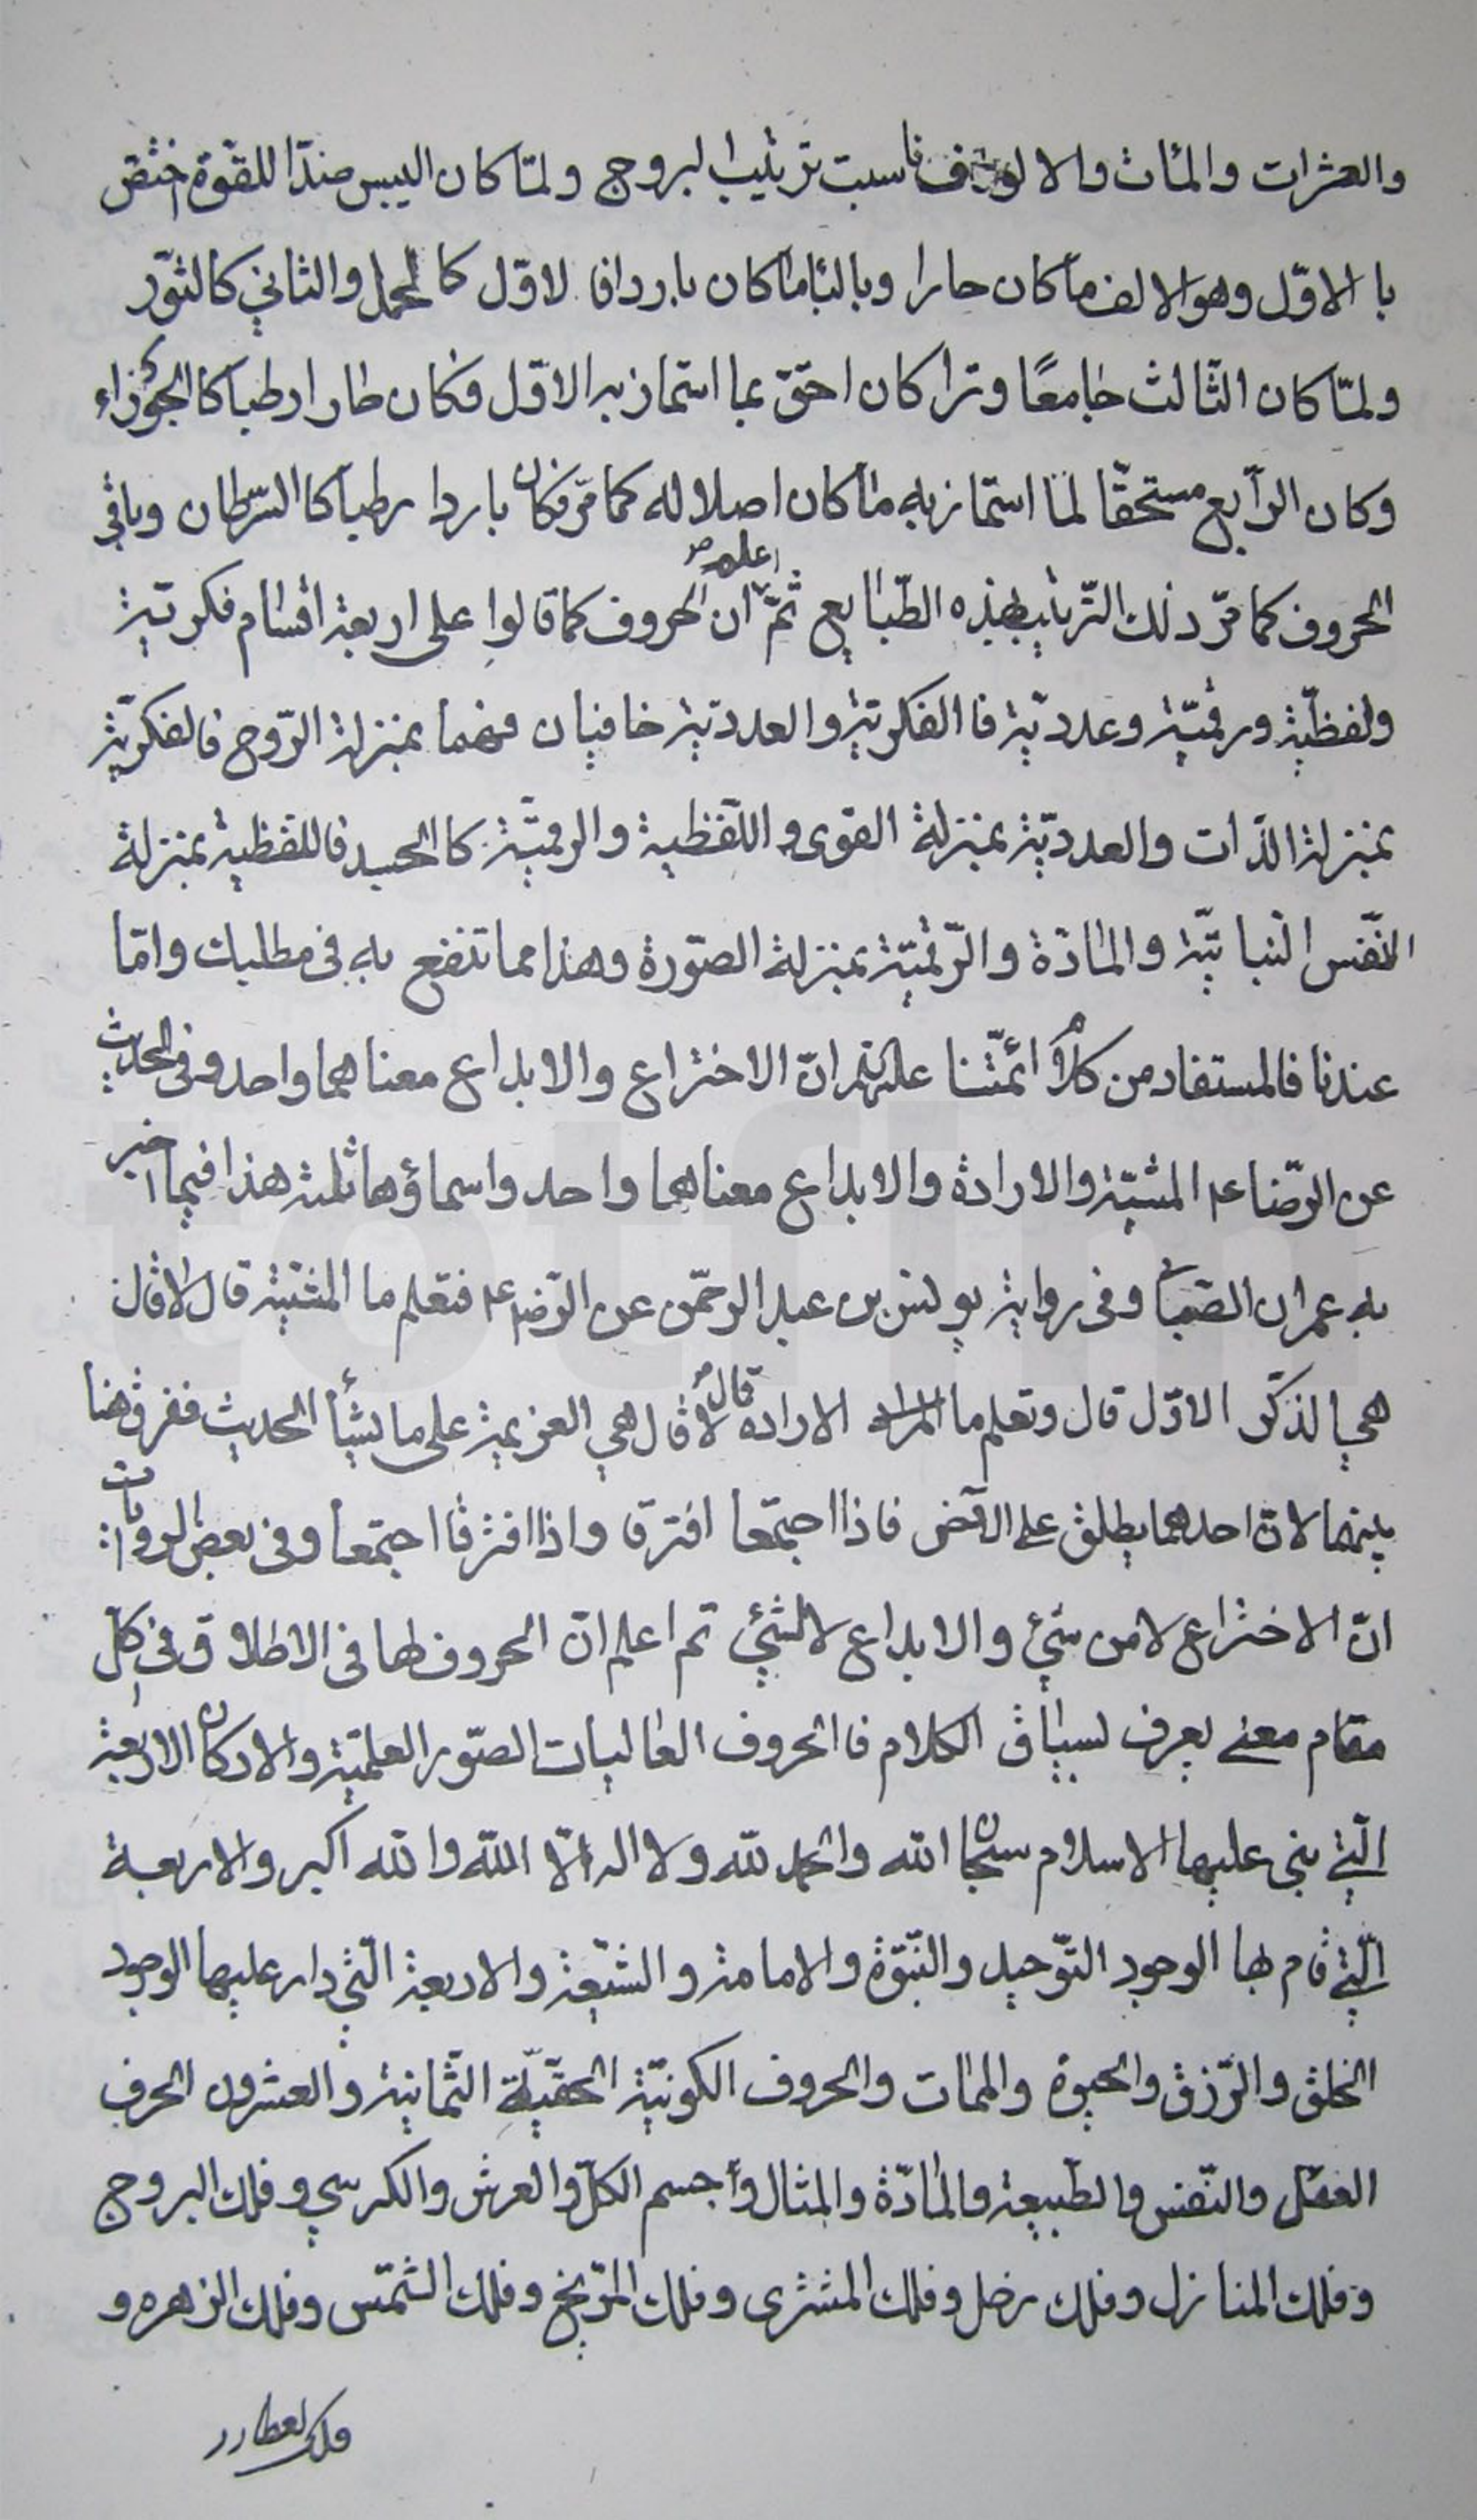 والعشرات والمأت والالوف ناسبت ترتيب البروج ولمّا كان اليبس ضدّا للقوّة اختصّ
با الاوّل وهو الالف ما كان حارا وبالبا ما كان باردا فا لاوّل كا لحمل والثاني كالثّور
ولمّا كان الثّالث جامعًا وترا كان احقّ بما امتاز به الاوّل فكان حارا رطبا كا الجوزاء
وكان الرّابع مستحقّا لما امتاز به ما كان اصلا له كما مرّ فكان باردا رطبا كا السّرطان وباقي
الحروف كما مرّ ذلك التّرتيب بهذه الطّبايع ثمّ اعلم ان الحروف كما قالوا على اربعة اقسام فكريّة
ولفظيّة ورقميّة وعدديّة فا الفكريّة والعدديّة خافيان فهما بمنزلة الرّوح فالفكريّة
بمنزلة الذّات والعدديّة بمنزلة القوى واللّفظية والرقميّة كا الجسد فاللفظية بمنزلة
النّفس النباتيّة والمادّة والرّقميّة بمنزلة الصّورة وهذا مما تنفع به في مطلبك وامّا
عندنا فالمستفاد من كلام ائمّتنا عليهم انّ الاختراع والابداع معناهما واحد وفي الحديث
عن الرّضا عم المشيّة والارادة والابداع معناها واحد واسماؤها ثلثة هذا فيما اخبر
به عمران الصّابي وفي رواية يونس بن عبد الرحمّن عن الرّضا عم فتعلم ما المشيّة قال لا قال
هي الذكّر الاوّل قال وتعلم ما الاراده قال لا قال هي العزيمة على ما يشأ الحديث ففرق هنا
بينهما لانّ احدهما يطلق على الاخر فاذا اجتمعا افترقا واذا افترقا اجتمعا وفي بعض الروايات
انّ الاختراع لا من شئ والابداع لا لشئ ثم اعلم انّ الحروف لها في الاطلاق في كلّ
مقام معنى يعرف لسياق الكلام فا الحروف العاليات الصّور العلميّة والاركان الاربعة
الّتي بني عليها الاسلام سبحان الله والحمد لله ولا اله الاّ اللّه والله اكبر والاربعة
الّتي قام بها الوجود التّوحيد والنّبوّة والامامة والشّيعة والاربعة الّتي دار عليها الوجود
الخلق والرّزق والحيوة والممات والحروف الكونيّة الحقيّة الثّمانية والعشرون الحرف
العقل والنّفس والطّبيعة والمادّة والمثال وجسم الكلّ والعرش والكرسي وفلك البروج
وفلك المنازل وفلك زحل وفلك المشترى وفلك المرّيخ وفلك الشّمس وفلك الزهره و
فلك عطارد